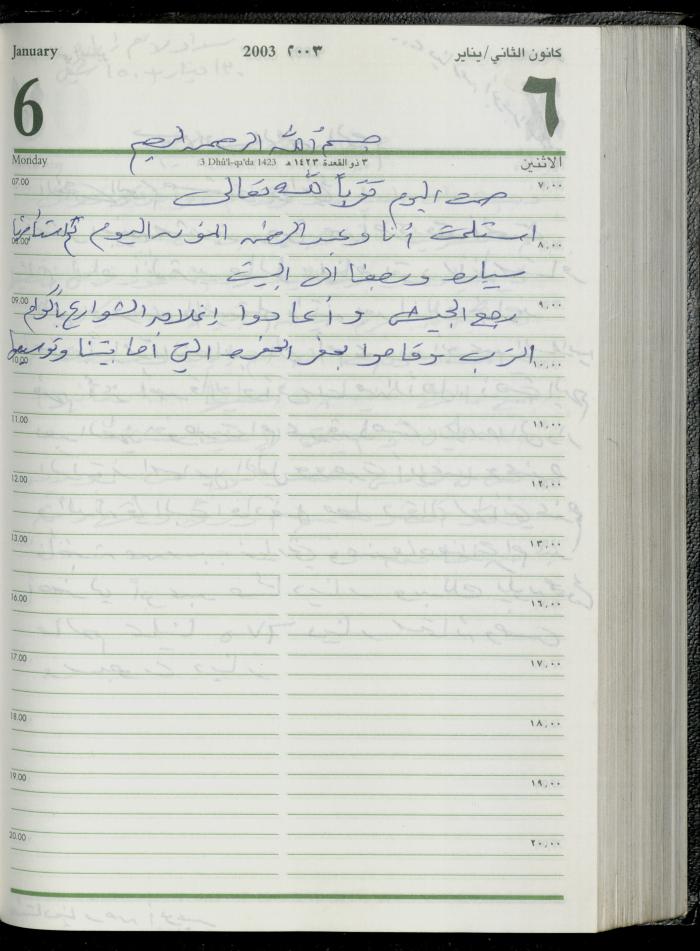 January 2003 ٢٠٠٣ كانون الثاني/يناير
6 ٦
بسم الله الرحمن الرحيم
Monday 3 Dhū'l-qa'da 1423 ٣ ذو القعدة ١٤٢٣ هـ الاثنين
07.00 ٧,٠٠
صمت اليوم تقرباً لله تعالى
استلمت أنا وعبد الرحمن المؤن اليوم ثم استأجرنا
08.00 ٨,٠٠
سيارة ورجعنا الى البيت
09.00 ٩,٠٠
رجع الجيش وأعادوا إغلاق الشوارع بأكوام
الترب وقاموا بحفر الحفرة التي أمام بيتنا وتوسيعها
10.00 ١٠,٠٠
11.00 ١١,٠٠
12.00 ١٢,٠٠
13.00 ١٣,٠٠
16.00 ١٦,٠٠
17.00 ١٧,٠٠
18.00 ١٨,٠٠
19.00 ١٩,٠٠
20.00 ٢٠,٠٠